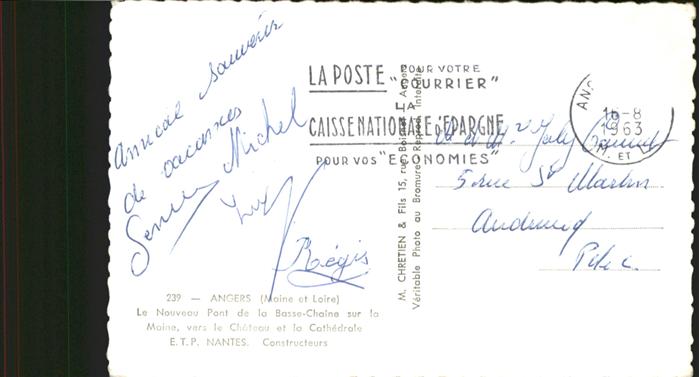 Amical souvenir
de vacances
Michel
Régis
239 — ANGERS (Maine et Loire)
Le Nouveau Pont de la Basse-Chaine sur la
Maine, vers le Château et la Cathédrale
E.T.P. NANTES. Constructeurs
M. CHRETIEN & Fils 15, rue Angers
Véritable Photo au Bromure - Reprod. Interdite
LA POSTE POUR VOTRE
"COURRIER"
LA
CAISSE NATIONALE d'EPARGNE
POUR VOS "ECONOMIES"
ANG
16-8
1963
M. ET
5 rue St Martin
Audruicq
P. de C.